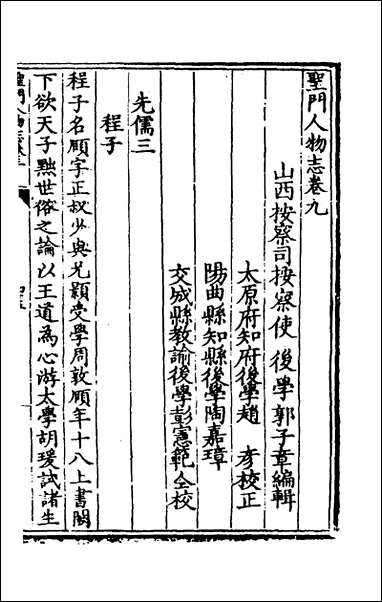 聖門人物志卷九
山西按察司按察使後學郭子章編輯
太原府知府後學趙 彥校正
陽曲縣知縣後學陶嘉璋
交城縣教諭後學彭憲範仝校
先儒三
程子
程子名頤字正叔少與兄顥受學周敦頤年十八上書闕
下欲天子黜世俗之論以王道為心游太學胡瑗試諸生